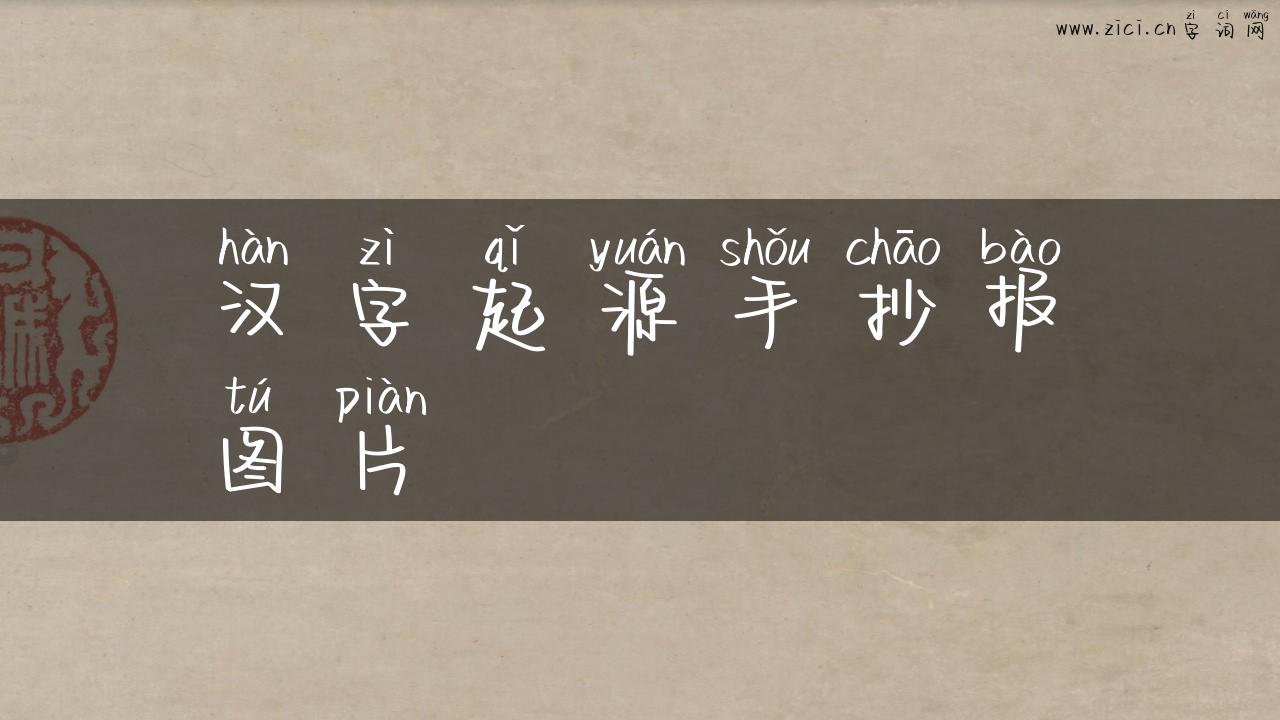 zì cí wǎng
www.zici.cn 字词网
hàn zì qǐ yuán shǒu chāo bào
汉字起源手抄报
tú piàn
图片